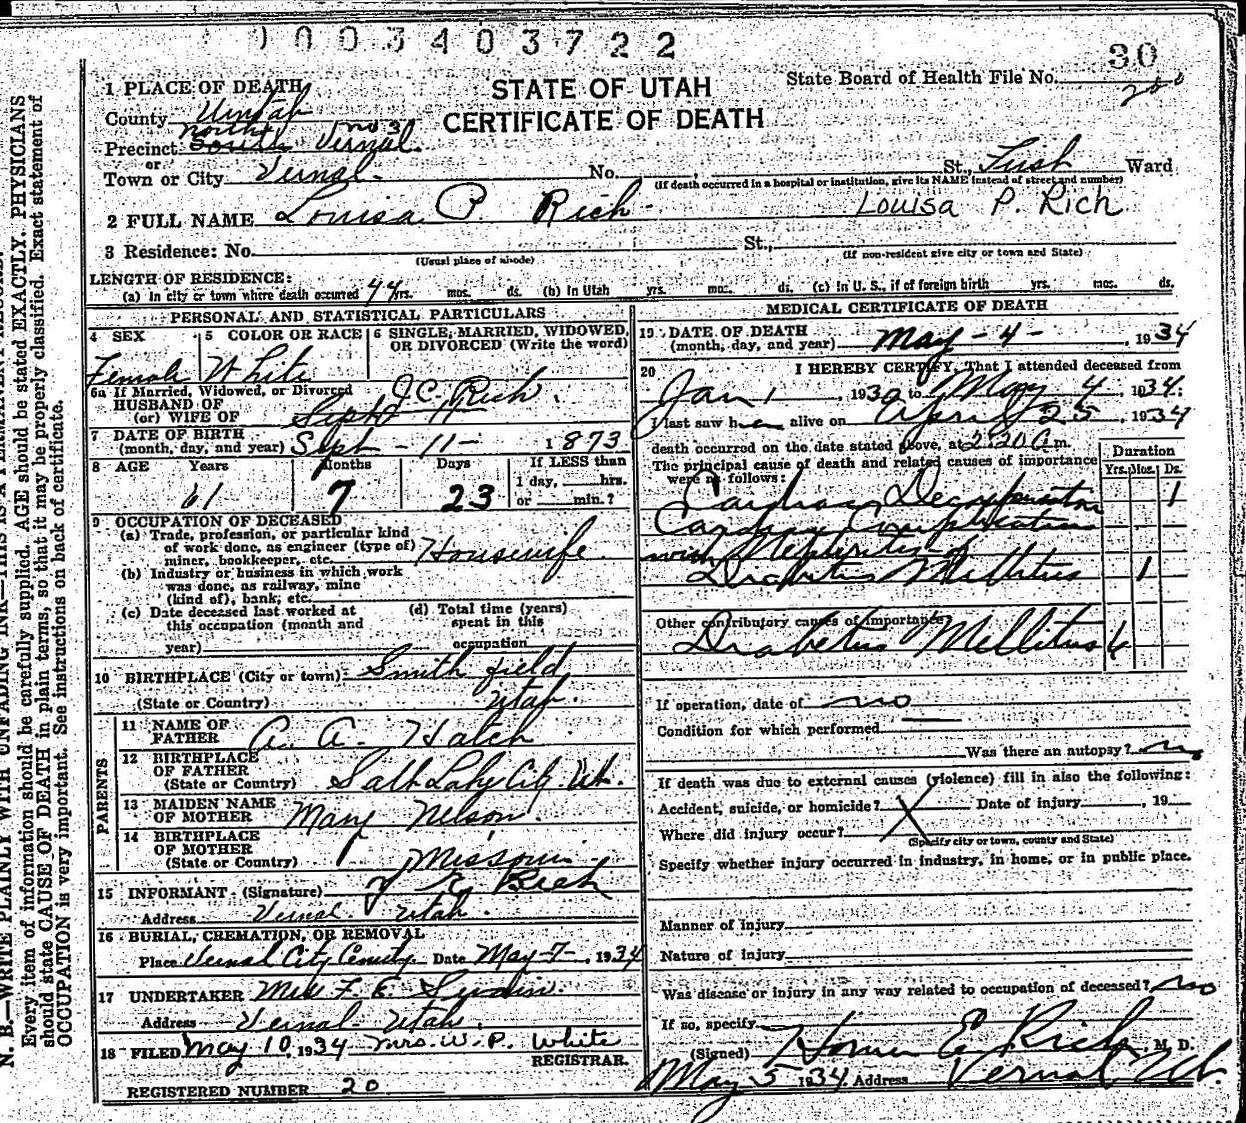 0003403722
30
STATE OF UTAH
CERTIFICATE OF DEATH
State Board of Health File No.
1 PLACE OF DEATH
County Uintah
Precinct North South Vernal no 3
or
Town or City Vernal. No. St., Ward
(If death occurred in a hospital or institution, give its NAME instead of street and number)
2 FULL NAME Louisa P. Rich Louisa P. Rich
3 Residence: No. St.,
(Usual place of abode) (If non-resident give city or town and State)
LENGTH OF RESIDENCE:
(a) In city or town where death occurred 44 yrs. mos. ds. (b) In Utah yrs. mos. ds. (c) In U. S., if of foreign birth yrs. mos. ds.
PERSONAL AND STATISTICAL PARTICULARS
4 SEX 5 COLOR OR RACE 6 SINGLE, MARRIED, WIDOWED, OR DIVORCED (Write the word)
Female White
6a If Married, Widowed, or Divorced
HUSBAND OF
(or) WIFE OF J.C. Rich. Sept 11
7 DATE OF BIRTH
(month, day, and year) Sept - 11 - 1873
8 AGE Years Months Days If LESS than
1 day, hrs.
or min.?
61 7 23
9 OCCUPATION OF DECEASED
(a) Trade, profession, or particular kind
of work done, as engineer (type of)
miner, bookkeeper, etc. Housewife
(b) Industry or business in which work
was done, as railway, mine
(kind of), bank, etc.
(c) Date deceased last worked at
this occupation (month and
year)
(d) Total time (years)
spent in this
occupation
10 BIRTHPLACE (City or town) Smithfield
(State or Country) Utah
PARENTS
11 NAME OF
FATHER A. A. Hatch
12 BIRTHPLACE
OF FATHER
(State or Country) Salt Lake City. Ut.
13 MAIDEN NAME
OF MOTHER Mary Nelson.
14 BIRTHPLACE
OF MOTHER
(State or Country) Missouri
15 INFORMANT (Signature) Rich
Address Vernal Utah.
16 BURIAL, CREMATION, OR REMOVAL
Place Vernal City Date May-7-, 1934
17 UNDERTAKER F. E.
Address Vernal- Utah.
18 FILED May 10, 1934 Mrs. W. P. White
REGISTRAR.
REGISTERED NUMBER 20
MEDICAL CERTIFICATE OF DEATH
19 DATE OF DEATH
(month, day, and year) May-4-, 1934
20 I HEREBY CERTIFY, That I attended deceased from
Jan 1, 1930 to May 4, 1934.
I last saw her alive on April 25, 1934
death occurred on the date stated above, at 2:20 A m.
The principal cause of death and related causes of importance
were as follows:
Duration
Yrs. Mos. Ds.
Cardiac 1
Cardiac Complication
with Nephritis of
Diabetus Mellitus 1
Other contributory causes of importance:
Diabetus Mellitus 6
If operation, date of no
Condition for which performed
Was there an autopsy? no
If death was due to external causes (violence) fill in also the following:
Accident, suicide, or homicide? X Date of injury , 19
Where did injury occur?
(Specify city or town, county and State)
Specify whether injury occurred in industry, in home, or in public place.
Manner of injury
Nature of injury
Was disease or injury in any way related to occupation of deceased? no
If so, specify
(Signed) Homer E. Rich, M. D.
May 5 1934. Address Vernal Ut.
N. B.—WRITE PLAINLY WITH UNFADING INK—THIS IS A PERMANENT RECORD.
Every item of information should be carefully supplied. AGE should be stated EXACTLY. PHYSICIANS
should state CAUSE OF DEATH in plain terms, so that it may be properly classified. Exact statement of
OCCUPATION is very important. See instructions on back of certificate.